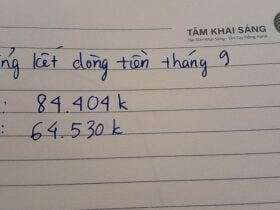 TÂM KHAI SÁNG
kết dòng tiền tháng 9
: 84.404k
: 64.530k